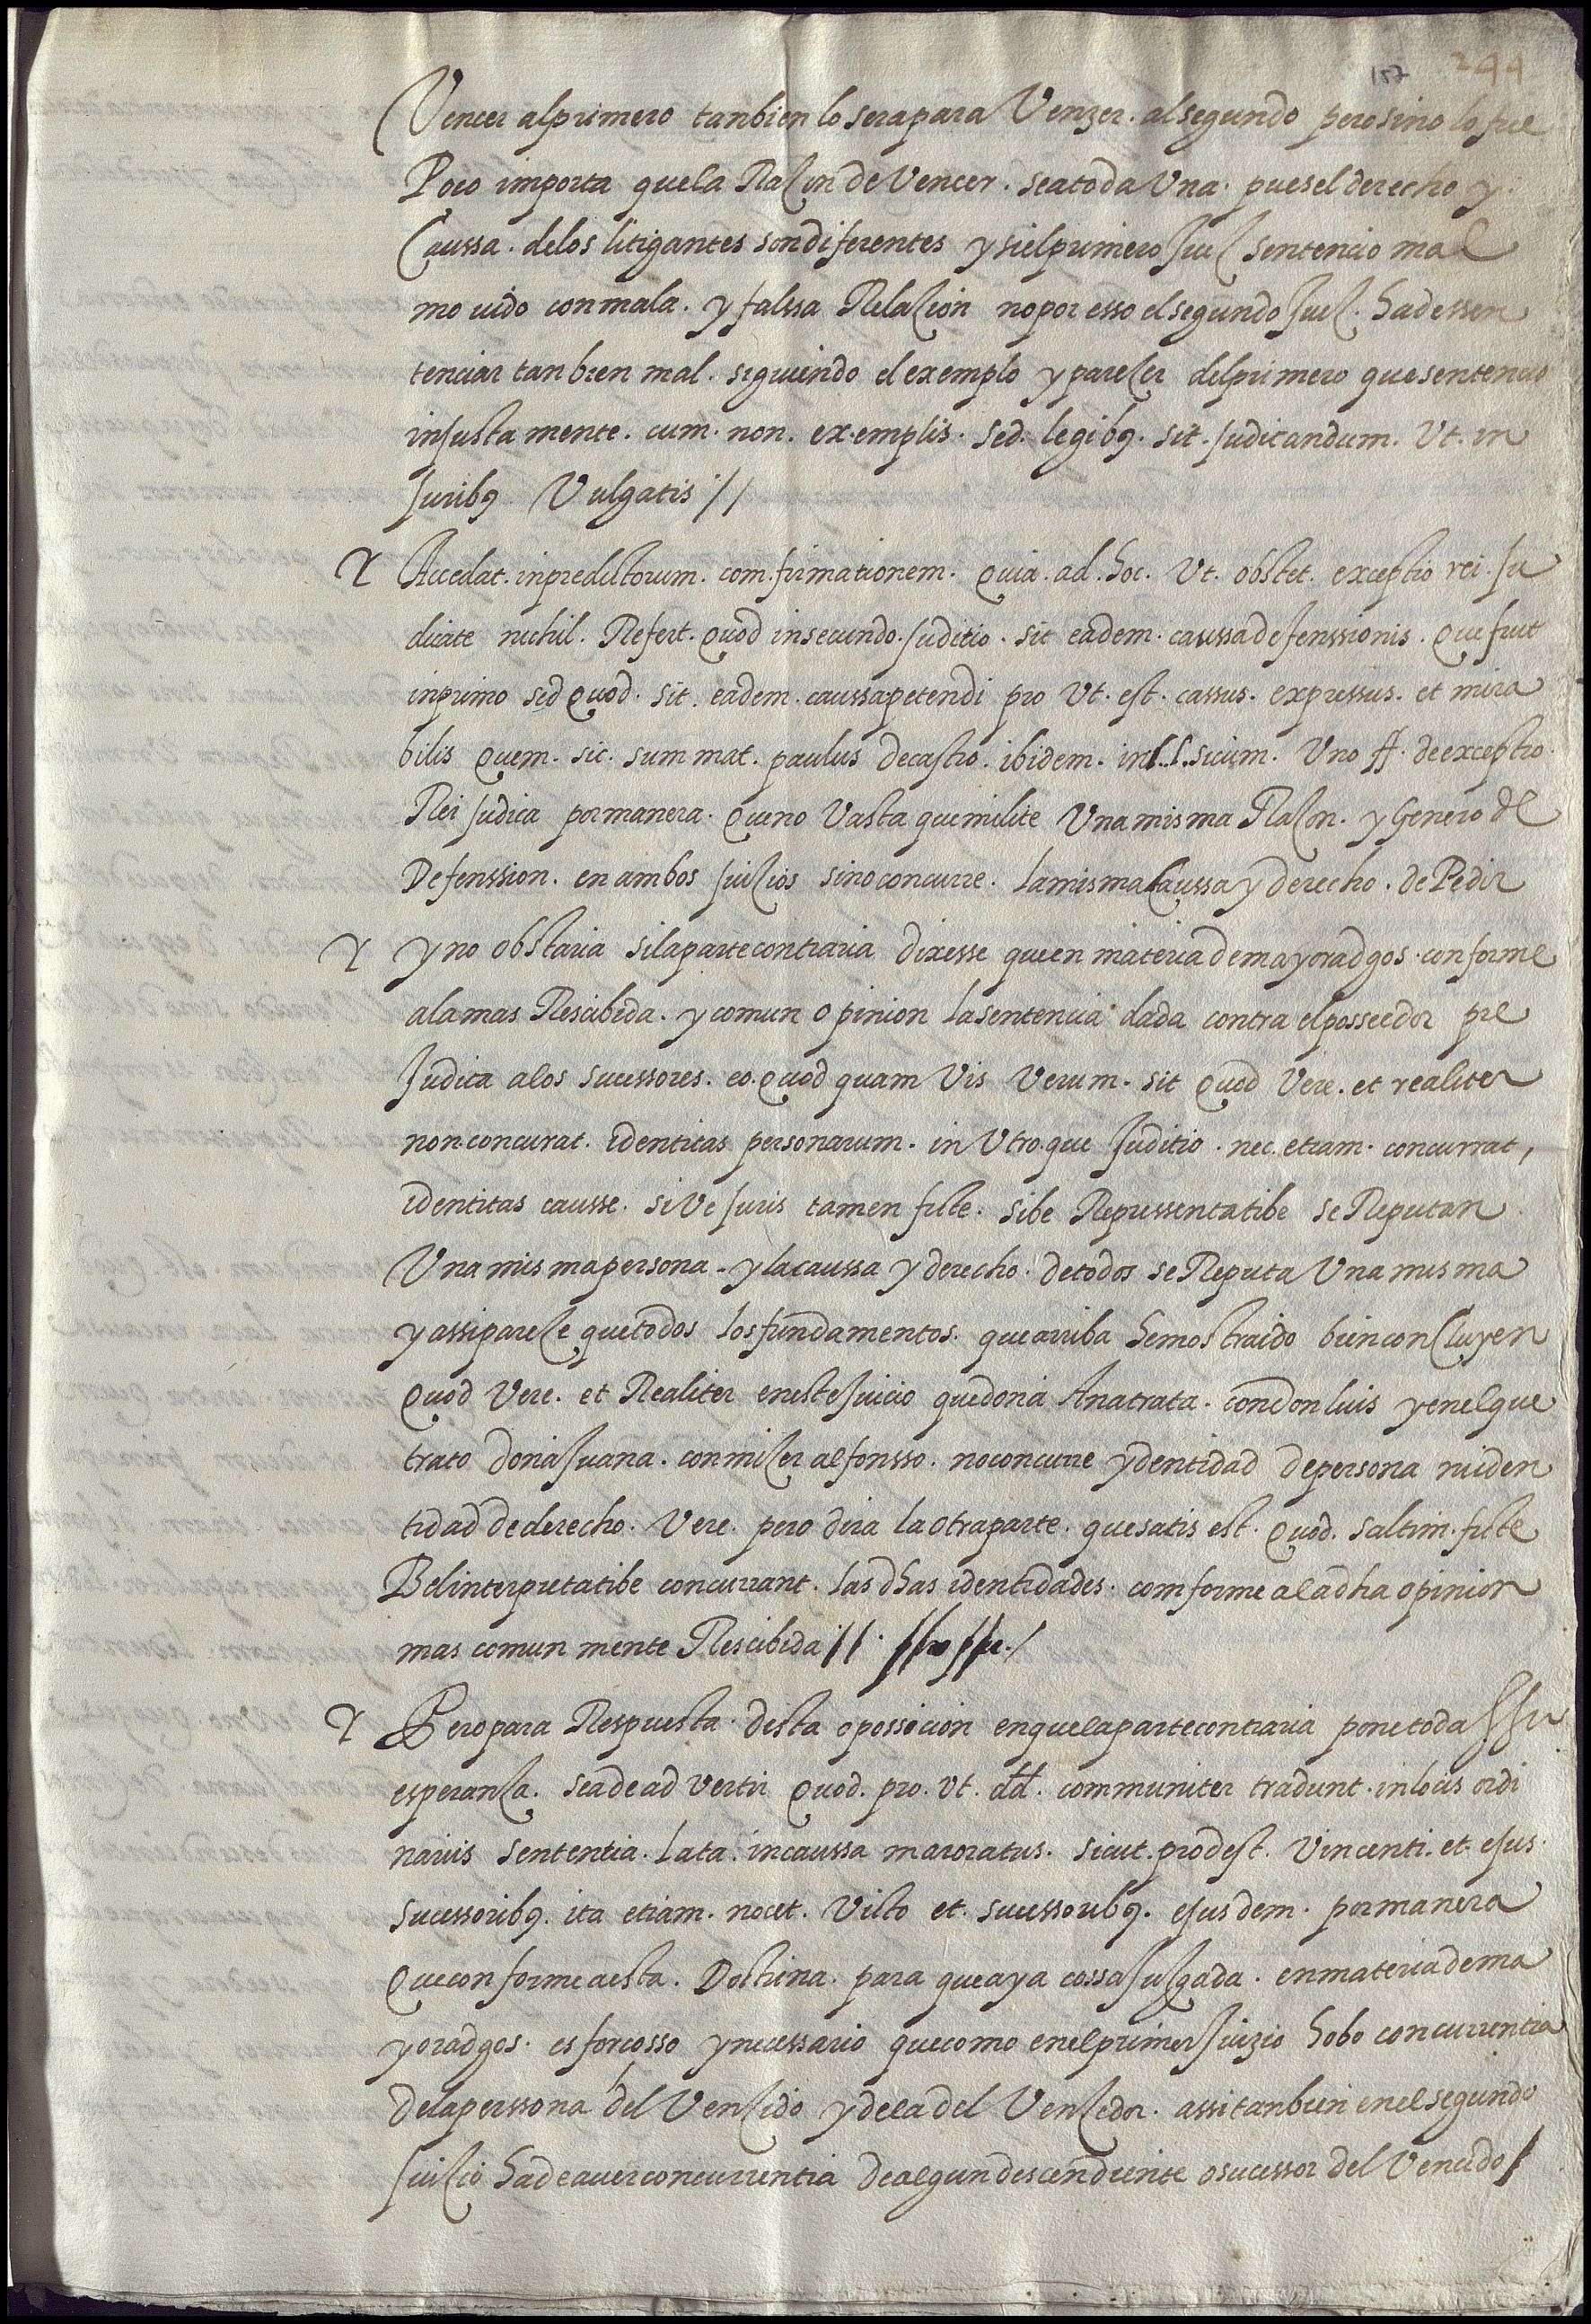 157 244
Vencer al primero tanbien lo sera para Venzer. al segundo pero sino lo fue
Poco importa que la Raçon de Vencer. sea toda Una. pues el derecho y
Caussa. de los litigantes son diferentes y si el primero Juez sentencio mal
mo vido con mala. y falssa Relaçion no por esso el segundo Juez. ha de ssen
tenciar tan bien mal. siguiendo el exemplo y pareçer del primero que sentencio
injusta mente. cum. non. ex.emplis. sed. legibq. sit. judicandum. Vt. in
juribq Vulgatis //
Y Accedat. in predictorum. com.firmationem. Quia. ad. hoc. Vt. obstet. exceptio rei. Ju
dicate nichil. Refert. Quod in secundo. Juditio. sit eadem. caussa defenssionis. Que fuit
in primo sed Quod. sit. eadem. caussa petendi pro Vt. est. cassus. expressus. et mira
bilis Quem. sic. sum mat. paulus de castro. ibidem. in l. si cum. Uno ff. de exceptio.
Rei Judica por manera. Que no Vasta que milite Una misma Raçon. y Genero de
Defenssion. en ambos Juiçios sino concurre. la misma Caussa y derecho. de Pedir
Y y no obstaria si la parte contraria dixesse que en materia de mayoradgos. conforme
a la mas Rescibida. y comun opinion la sentencia dada contra el posseedor pre
Judica a los sucessores. eo. Quod quam Vis Verum. sit Quod Vere. et realiter
non concurat. identitas personarum. in Utro.que Juditio. nec. etiam. concurrat,
identitas causse. sive Juris tamen ficte. sibe Repressentatibe se Reputan
Una mis ma persona - y la caussa y derecho. de todos se Reputa Una mis ma
y assi pareçe que todos los fundamentos. que arriba hemos traido bien conçluyen
Quod Vere. et Realiter en este Juicio que doña Ana trata. con don luis y en el que
trato doña Juana. con miçer alfonsso. no concurre ydentidad de persona ni iden
tidad de derecho. Vere. pero dira la otra parte. que satis est. Quod. saltim. ficte
Bel interpretatibe concurrant. las dhas identidades. comforme a la dha opinion
mas comun mente Rescibida //
Y Pero para Respuesta. desta opossicion en que la parte contraria pone toda ssu
esperança. se a de ad vertir Quod. pro. Vt. dd. communiter tradunt. in locis ordi
nariis sententia. lata. in caussa maioratus. sicut. prodest. Vincenti. et ejus.
sucessoribq. ita etiam. nocet. Victo et. sucessoribq. ejus dem. por manera
Que con forme a esta. Doctrina. para que aya cossa Juzgada. en materia de ma
yoradgos. es forcosso y necessario que como en el primer Juizio hobo concurrentia
de la perssona del Vençido y de la del Vençedor. assi tanbien en el segundo
Juiçio ha de aver concurrentia de algun descendiente o sucessor del Vencido /